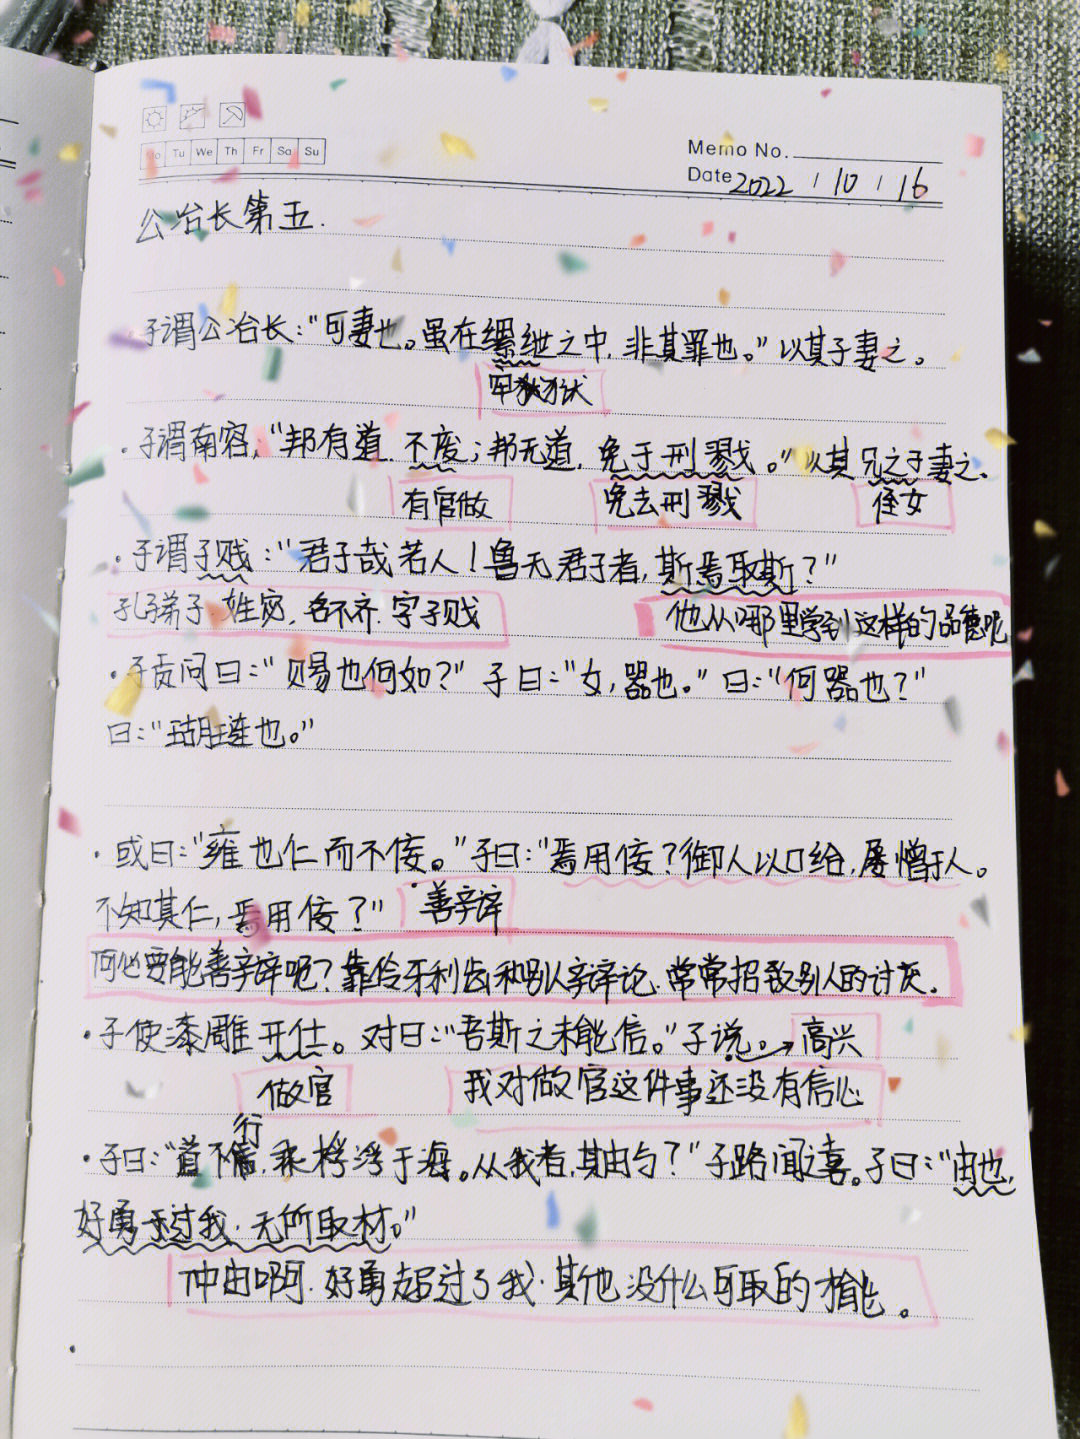 Mo Tu We Th Fr Sa Su
Memo No.
Date 2022 / 10 / 16
公冶长第五.
·子谓公冶长:“可妻也。虽在缧绁之中,非其罪也。”以其子妻之。
牢狱
·子谓南容:“邦有道,不废;邦无道,免于刑戮。”以其兄之子妻之.
有官做 免去刑戮 侄女
·子谓子贱:“君子哉若人!鲁无君子者,斯焉取斯?”
孔子弟子.姓宓,名不齐.字子贱 他从哪里学到这样的品德呢
·子贡问曰:“赐也何如?”子曰:“女,器也。”曰:“何器也?”
曰:“瑚琏也。”
·或曰:“雍也仁而不佞。”子曰:“焉用佞?御人以口给,屡憎于人。
不知其仁,焉用佞?” 善辩
何必要能善辩呢?靠伶牙利齿和别人辩论.常常招致别人的讨厌.
·子使漆雕开仕。对曰:“吾斯之未能信。”子说。→高兴
做官 我对做官这件事还没有信心
行
·子曰:“道不,乘桴浮于海。从我者,其由与?”子路闻之喜。子曰:“由也,
好勇于过我.无所取材。”
仲由啊.好勇超过了我.其他没什么可取的才能。